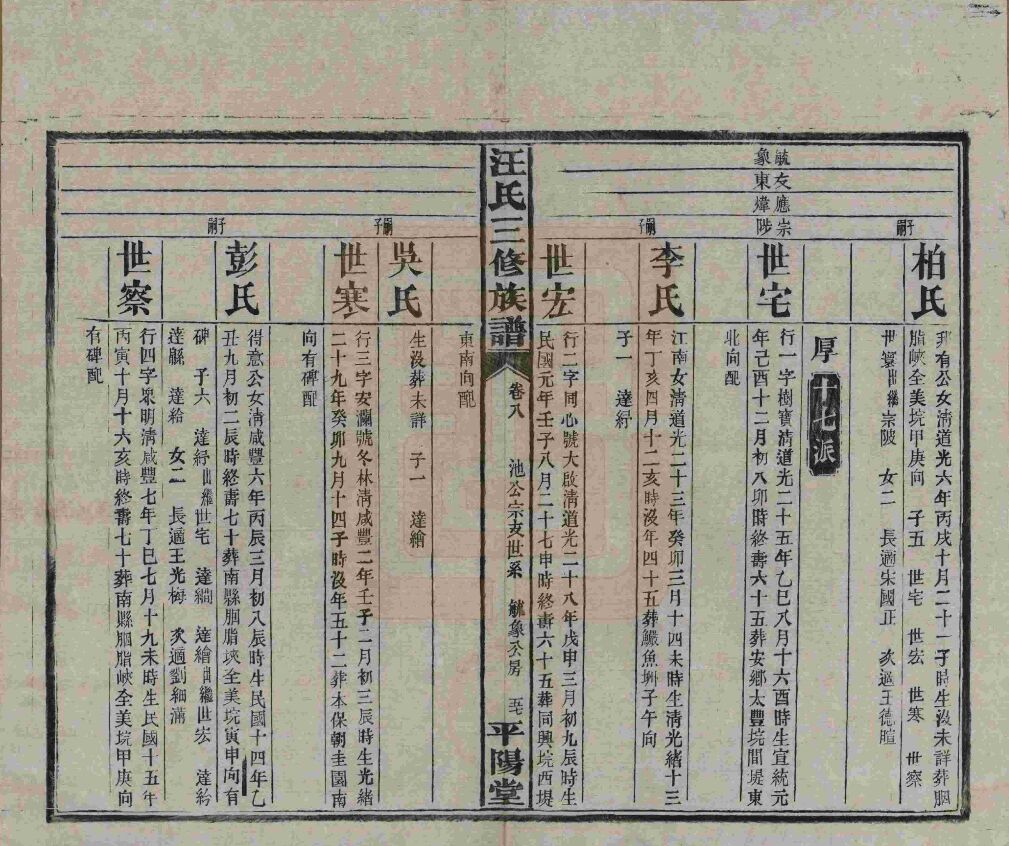 柏氏
羽有公女清道光六年丙戌十月二十一子時生没未詳葬胭
脂峽全美垸甲庚向　子五　世宅　世宏　世寒　世察
世寰出繼崇陂　女二　長適宋國正　次適王德暄
嗣子
厚十七派
毓友應崇
象東煒陟
世宅
行一字樹寶清道光二十五年乙巳八月十六酉時生宣統元
年己酉十二月初八卯時終壽六十五葬安鄉太豐垸間堤東
北向配
李氏
江南女清道光二十三年癸卯三月十四未時生清光緒十三
年丁亥四月十二亥時没年四十五葬鱖魚垇子午向
子一　達紓
嗣子
世宏
行二字同心號大啟清道光二十八年戊申三月初九辰時生
民國元年壬子八月二十七申時終壽六十五葬同興垸西堤
東南向配
汪氏三修族譜
卷八　池公宗支世系　毓象公房　五七
平陽堂
吳氏
生没葬未詳　子一　達繪
嗣子
世寒
行三字安瀾號冬林清咸豐二年壬子二月初三辰時生光緒
二十九年癸卯九月十四子時没年五十二葬本保朝圭園南
向有碑配
彭氏
得意公女清咸豐六年丙辰三月初八辰時生民國十四年乙
丑九月初二辰時終壽七十葬南縣胭脂峽全美垸寅申向有
碑　子六　達紓出繼世宅　達綱　達繪出繼世宏　達約
達縣　達給　女二　長適王光梅　次適劉細滿
嗣子
世察
行四字衆明清咸豐七年丁巳七月十九未時生民國十五年
丙寅十月十六亥時終壽七十葬南縣胭脂峽全美垸甲庚向
有碑配